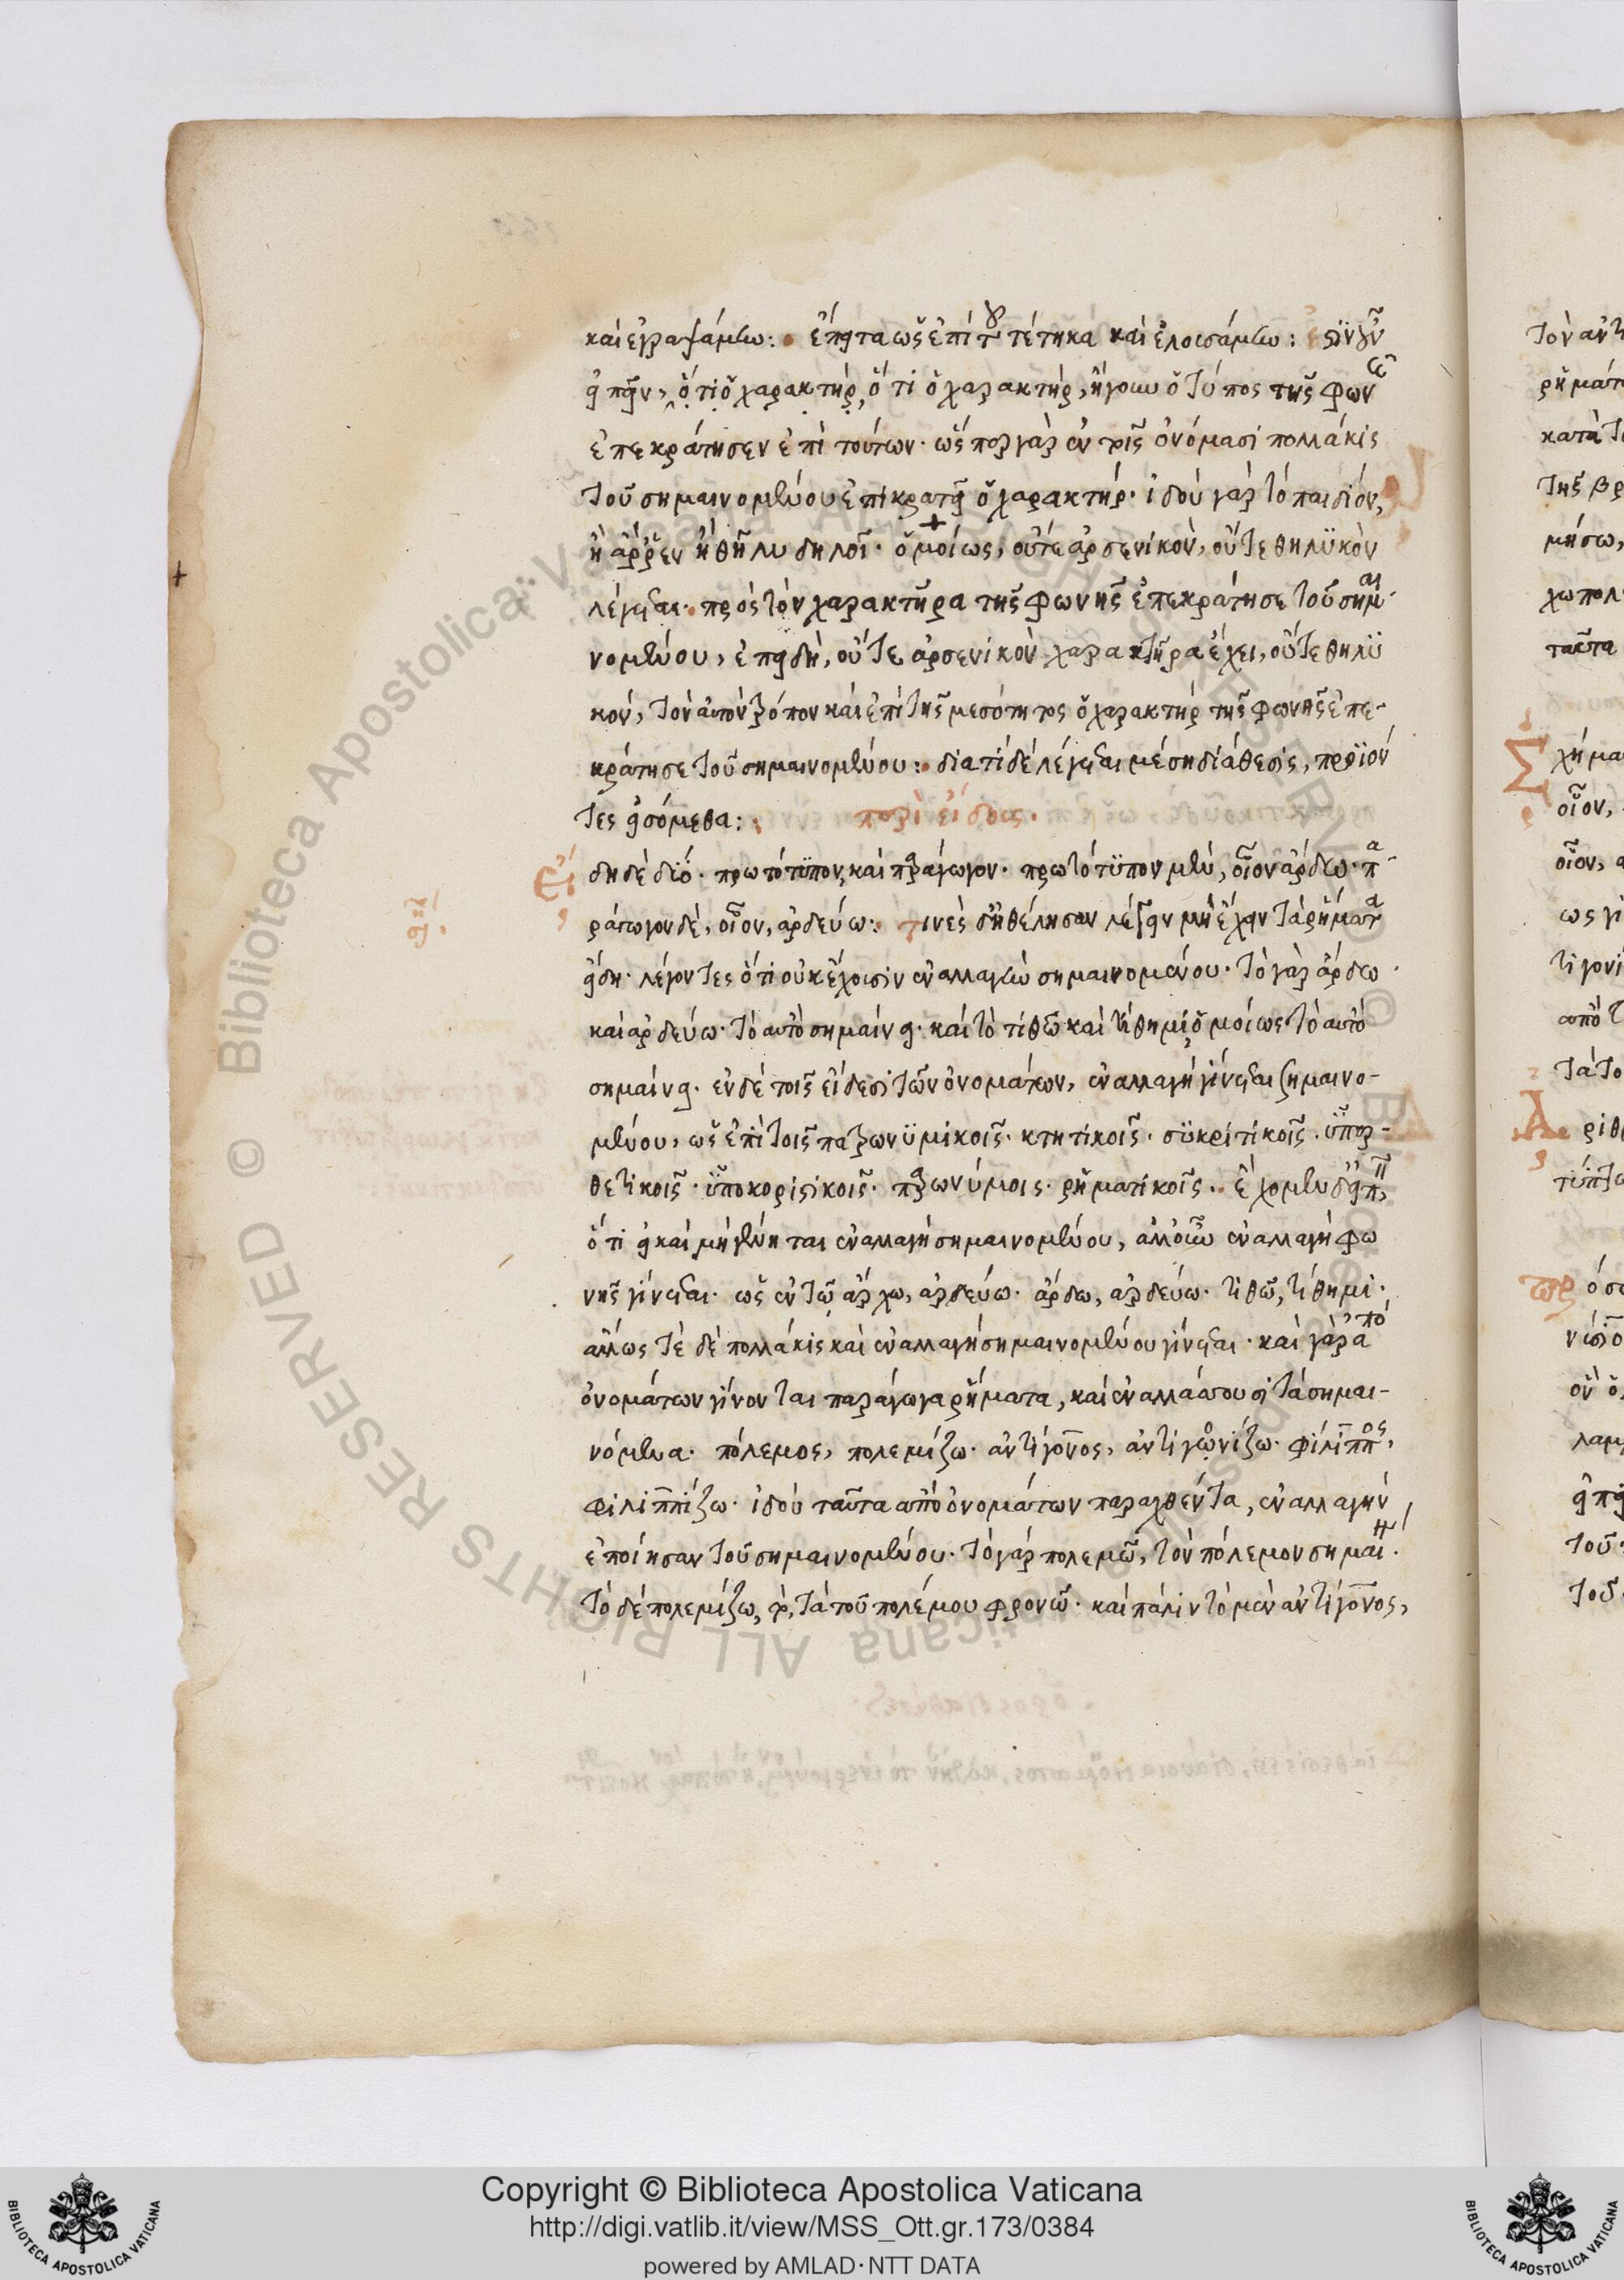 καὶ ἐγραψάμην: ἔπειτα ὡς ἐπὶ τοῦ τέτηκα καὶ ἐλουσάμην: ἔστιν οὖν
εἰπεῖν, ὅτι ὁ χαρακτήρ, ὅτι ὁ χαρακτήρ, ἤγουν ὁ τύπος τῆς φων
ἐπεκράτησεν ἐπὶ τούτων· ὥσπερ γὰρ ἐν τοῖς ὀνόμασι πολλάκις
τοῦ σημαινομένου ἐπικρατεῖ ὁ χαρακτήρ· ἰδοὺ γὰρ τὸ παιδίον,
ἢ ἄρρεν ἢ θῆλυ δηλοῖ· ὁμοίως, οὔτε ἀρσενικὸν, οὔτε θηλϋκὸν
λέγεται· πρὸς τὸν χαρακτῆρα τῆς φωνῆς ἐπεκράτησε τοῦ σημαι
νομένου, ἐπειδὴ, οὔτε ἀρσενικὸν χαρακτῆρα ἔχει, οὔτε θηλϋ
κόν, τὸν αὐτὸν τρόπον καὶ ἐπὶ τῆς μεσότητος ὁ χαρακτὴρ τῆς φωνῆς ἐπε-
κράτησε τοῦ σημαινομένου: διατί δὲ λέγεται μέση διάθεσις, προϊόν
τες εἰσόμεθα: περὶ εἴδους.
Εἴ
δη δὲ δύο· πρωτότϋπον, καὶ παράγωγον· πρωτότϋπον μὲν, οἷον ἄρδω· πα
ράγωγον δὲ, οἷον, ἀρδεύω: τινὲς δὲ ἠθέλησαν λέγειν μὴ ἔχειν τὰ ῥήματα
εἴδη· λέγοντες ὅτι οὐκ ἔχουσιν ἐναλλαγὴν σημαινομένου· τὸ γὰρ ἄρδω
καὶ ἀρδεύω· τὸ αὐτὸ σημαίνει· καὶ τὸ τιθῶ καὶ τίθημι ὁμοίως τὸ αὐτὸ
σημαίνει· ἐν δὲ τοῖς εἴδεσι τῶν ὀνομάτων, ἐναλλαγὴ γίνεται σημαινο-
μένου, ὡς ἐπὶ τοῖς πατρωνϋμικοῖς· κτητικοῖς· σϋκριτικοῖς· ὑπερ-
θετικοῖς· ὑποκοριστικοῖς· παρωνύμοις· ῥηματικοῖς· ἔχομεν δὲ εἰπ,
ὅτι εἰ καὶ μὴ γένηται ἐναλλαγὴ σημαινομένου, ἀλλ' οὖν ἐναλλαγὴ φω
νῆς γίνεται· ὡς ἐν τῷ ἄρχω, ἀρδεύω· ἄρδω, ἀρδεύω· τιθῶ, τίθημι·
ἄλλως τὲ δὲ πολλάκις καὶ ἐναλλαγὴ σημαινομένου γίνεται· καὶ γὰρ ἀπὸ
ὀνομάτων γίνονται παράγωγα ῥήματα, καὶ ἐναλλάττουσι τὰ σημαι-
νόμενα· πόλεμος, πολεμίζω· ἀντίγονος, ἀντιγονίζω· φίλιππος,
φιλιππίζω· ἰδοὺ ταῦτα ἀπὸ ὀνομάτων παραχθέντα, ἐναλλαγὴν
ἐποίησαν τοῦ σημαινομένου· τὸ γὰρ πολεμῶ, τὸν πόλεμον σημαί·
τὸ δὲ πολεμίζω, τὰ τοῦ πολέμου φρονῶ· καὶ πάλιν τὸ μὲν ἀντίγονος,
Copyright © Biblioteca Apostolica Vaticana
http://digi.vatlib.it/view/MSS_Ott.gr.173/0384
powered by AMLAD·NTT DATA